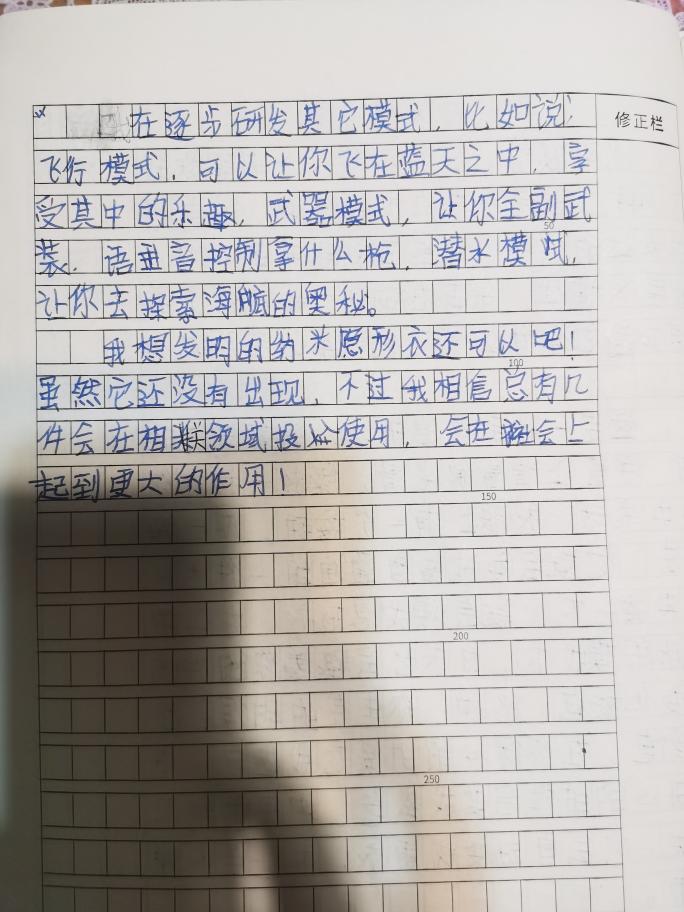 在逐步研发其它模式，比如说：
飞行模式，可以让你飞在蓝天之中，享
受其中的乐趣，武器模式，让你全副武
50
装，语音控制拿什么枪，潜水模式，
让你去探索海底的奥秘。
我想发明的纳米隐形衣还可以吧！
100
虽然它还没有出现，不过我相信总有几
件会在相关领域投入使用，会在社会上
起到更大的作用！
150
200
250
修正栏